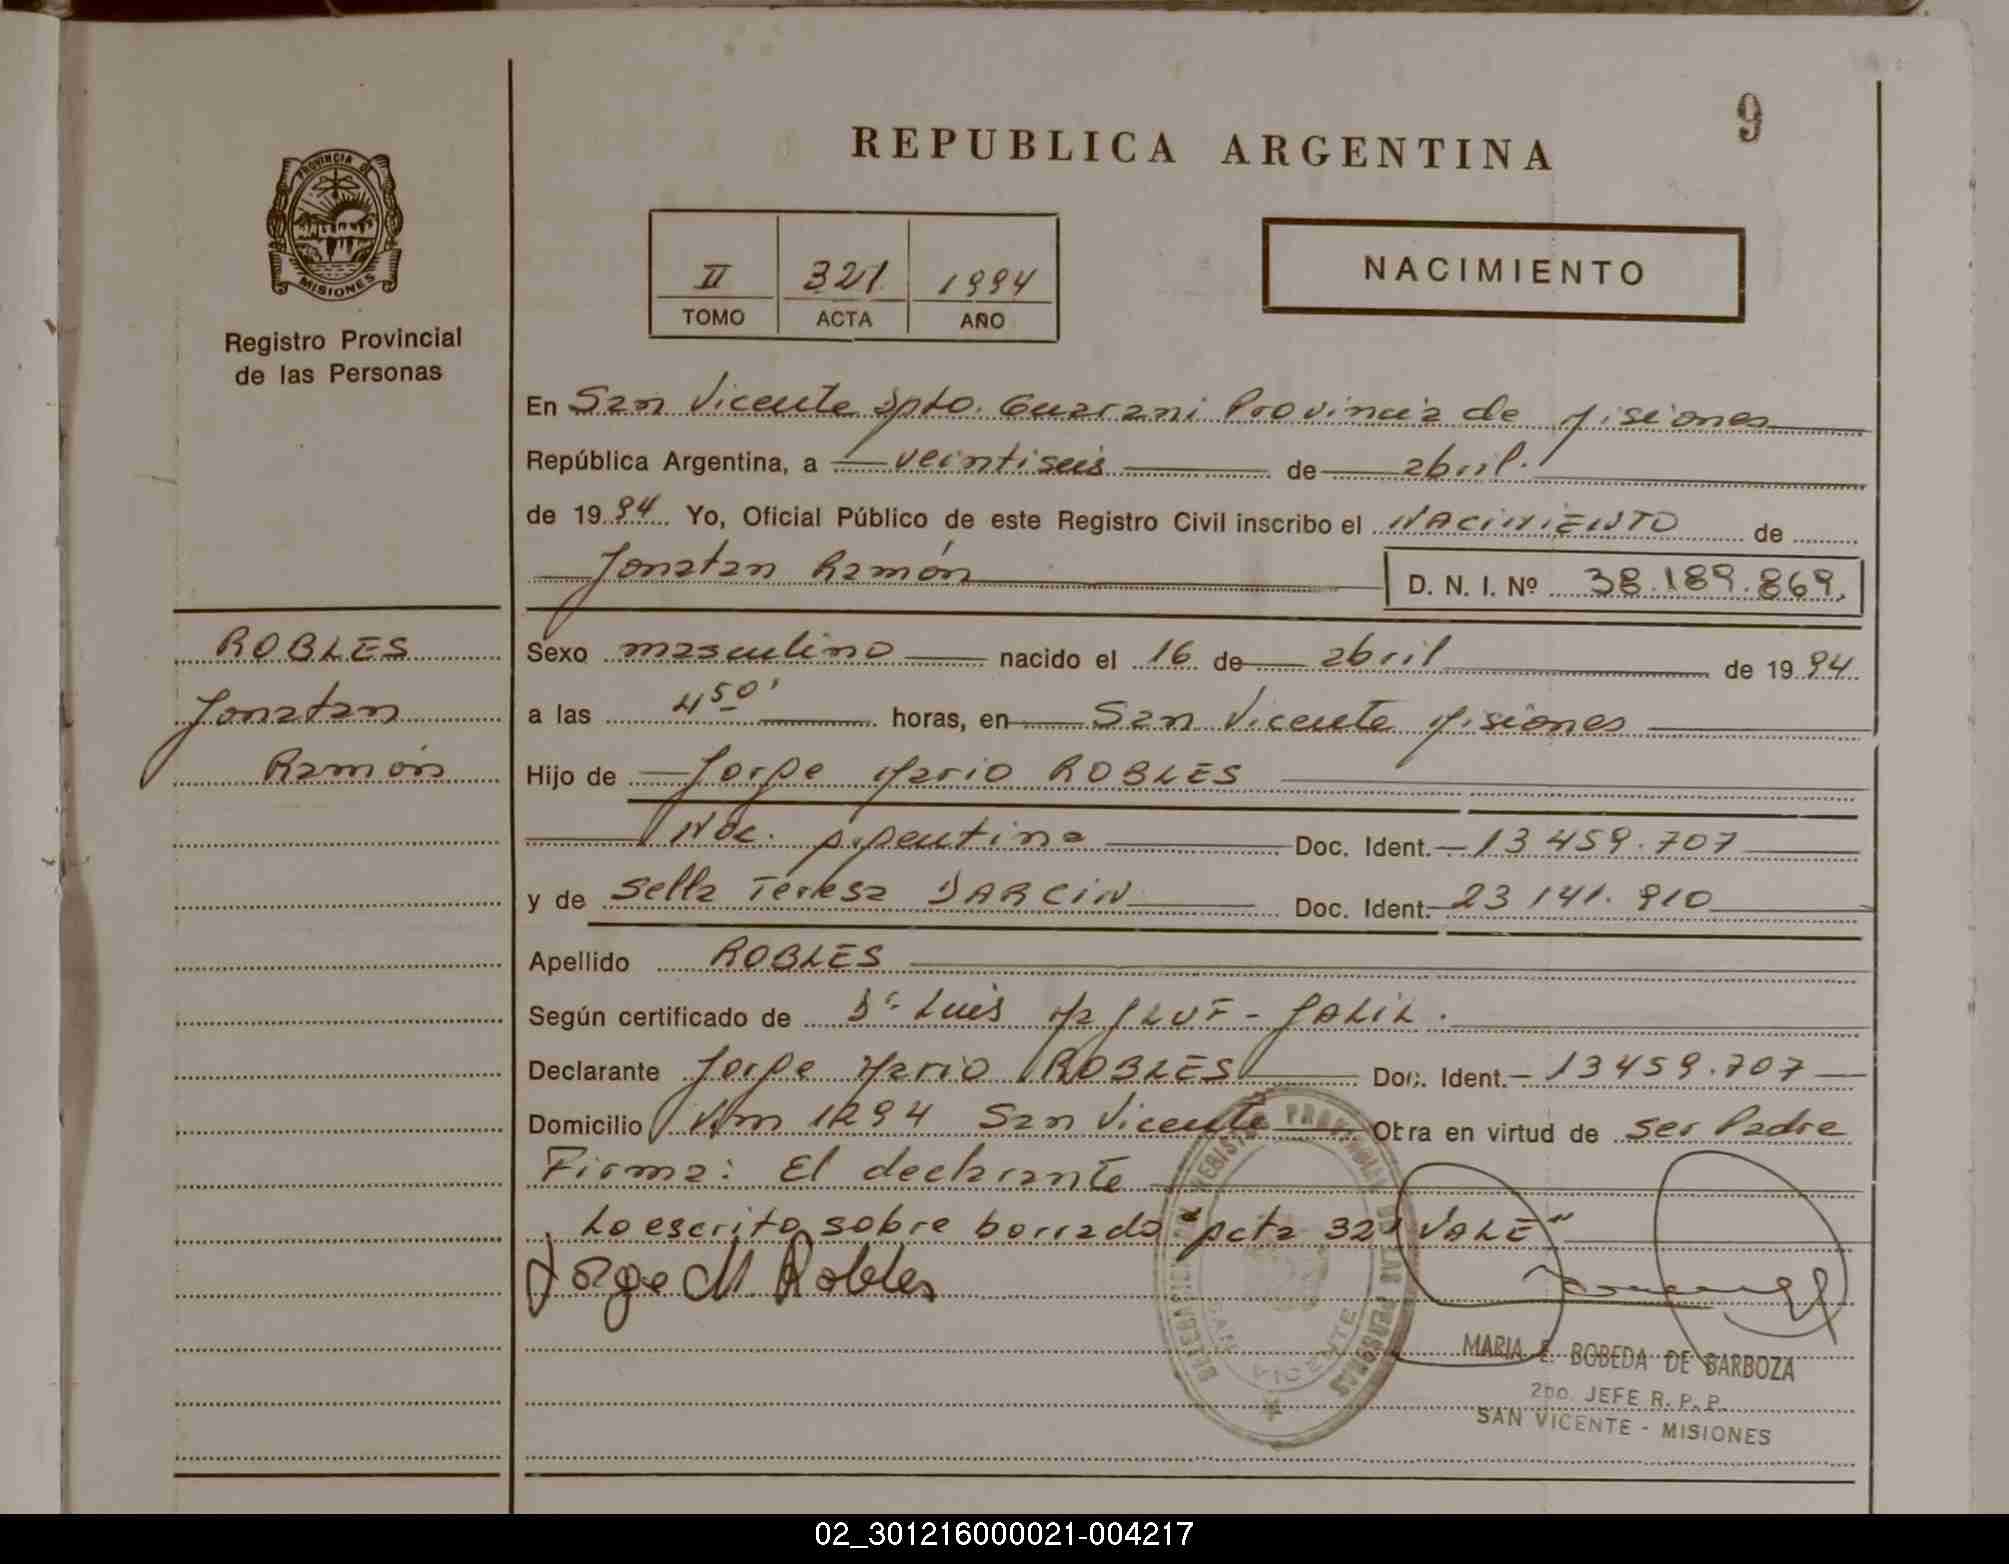 9
REPUBLICA ARGENTINA
PROVINCIA DE
MISIONES
Registro Provincial
de las Personas
II 321 1994
TOMO ACTA AÑO
NACIMIENTO
En San Vicente Dpto. Guarani Provincia de Misiones
República Argentina, a veintiseis de abril.
de 1994 Yo, Oficial Público de este Registro Civil inscribo el NACIMIENTO de
Jonatan Ramón D. N. I. Nº 38.189.869.
ROBLES
Jonatan
Ramón
Sexo masculino nacido el 16 de abril de 1994
a las 4 50' horas, en San Vicente Misiones
Hijo de Jorge Mario ROBLES
Nac. Argentina Doc. Ident. 13 459.707
y de Sella Teresa DARCIN Doc. Ident. 23 141.910
Apellido ROBLES
Según certificado de Dr Luis JALIL.
Declarante Jorge Mario ROBLES Doc. Ident. 13459.707
Domicilio Km 1294 San Vicente Otra en virtud de ser Padre
Firma: El declarante
Lo escrito sobre borrado "Acta 321 VALE"
Jorge M. Robles
DELEGACION REGISTRO PROVINCIAL DE LAS PERSONAS
SAN VICENTE
MARIA E. BOBEDA DE BARBOZA
2DO. JEFE R. P. P.
SAN VICENTE - MISIONES
02_301216000021-004217